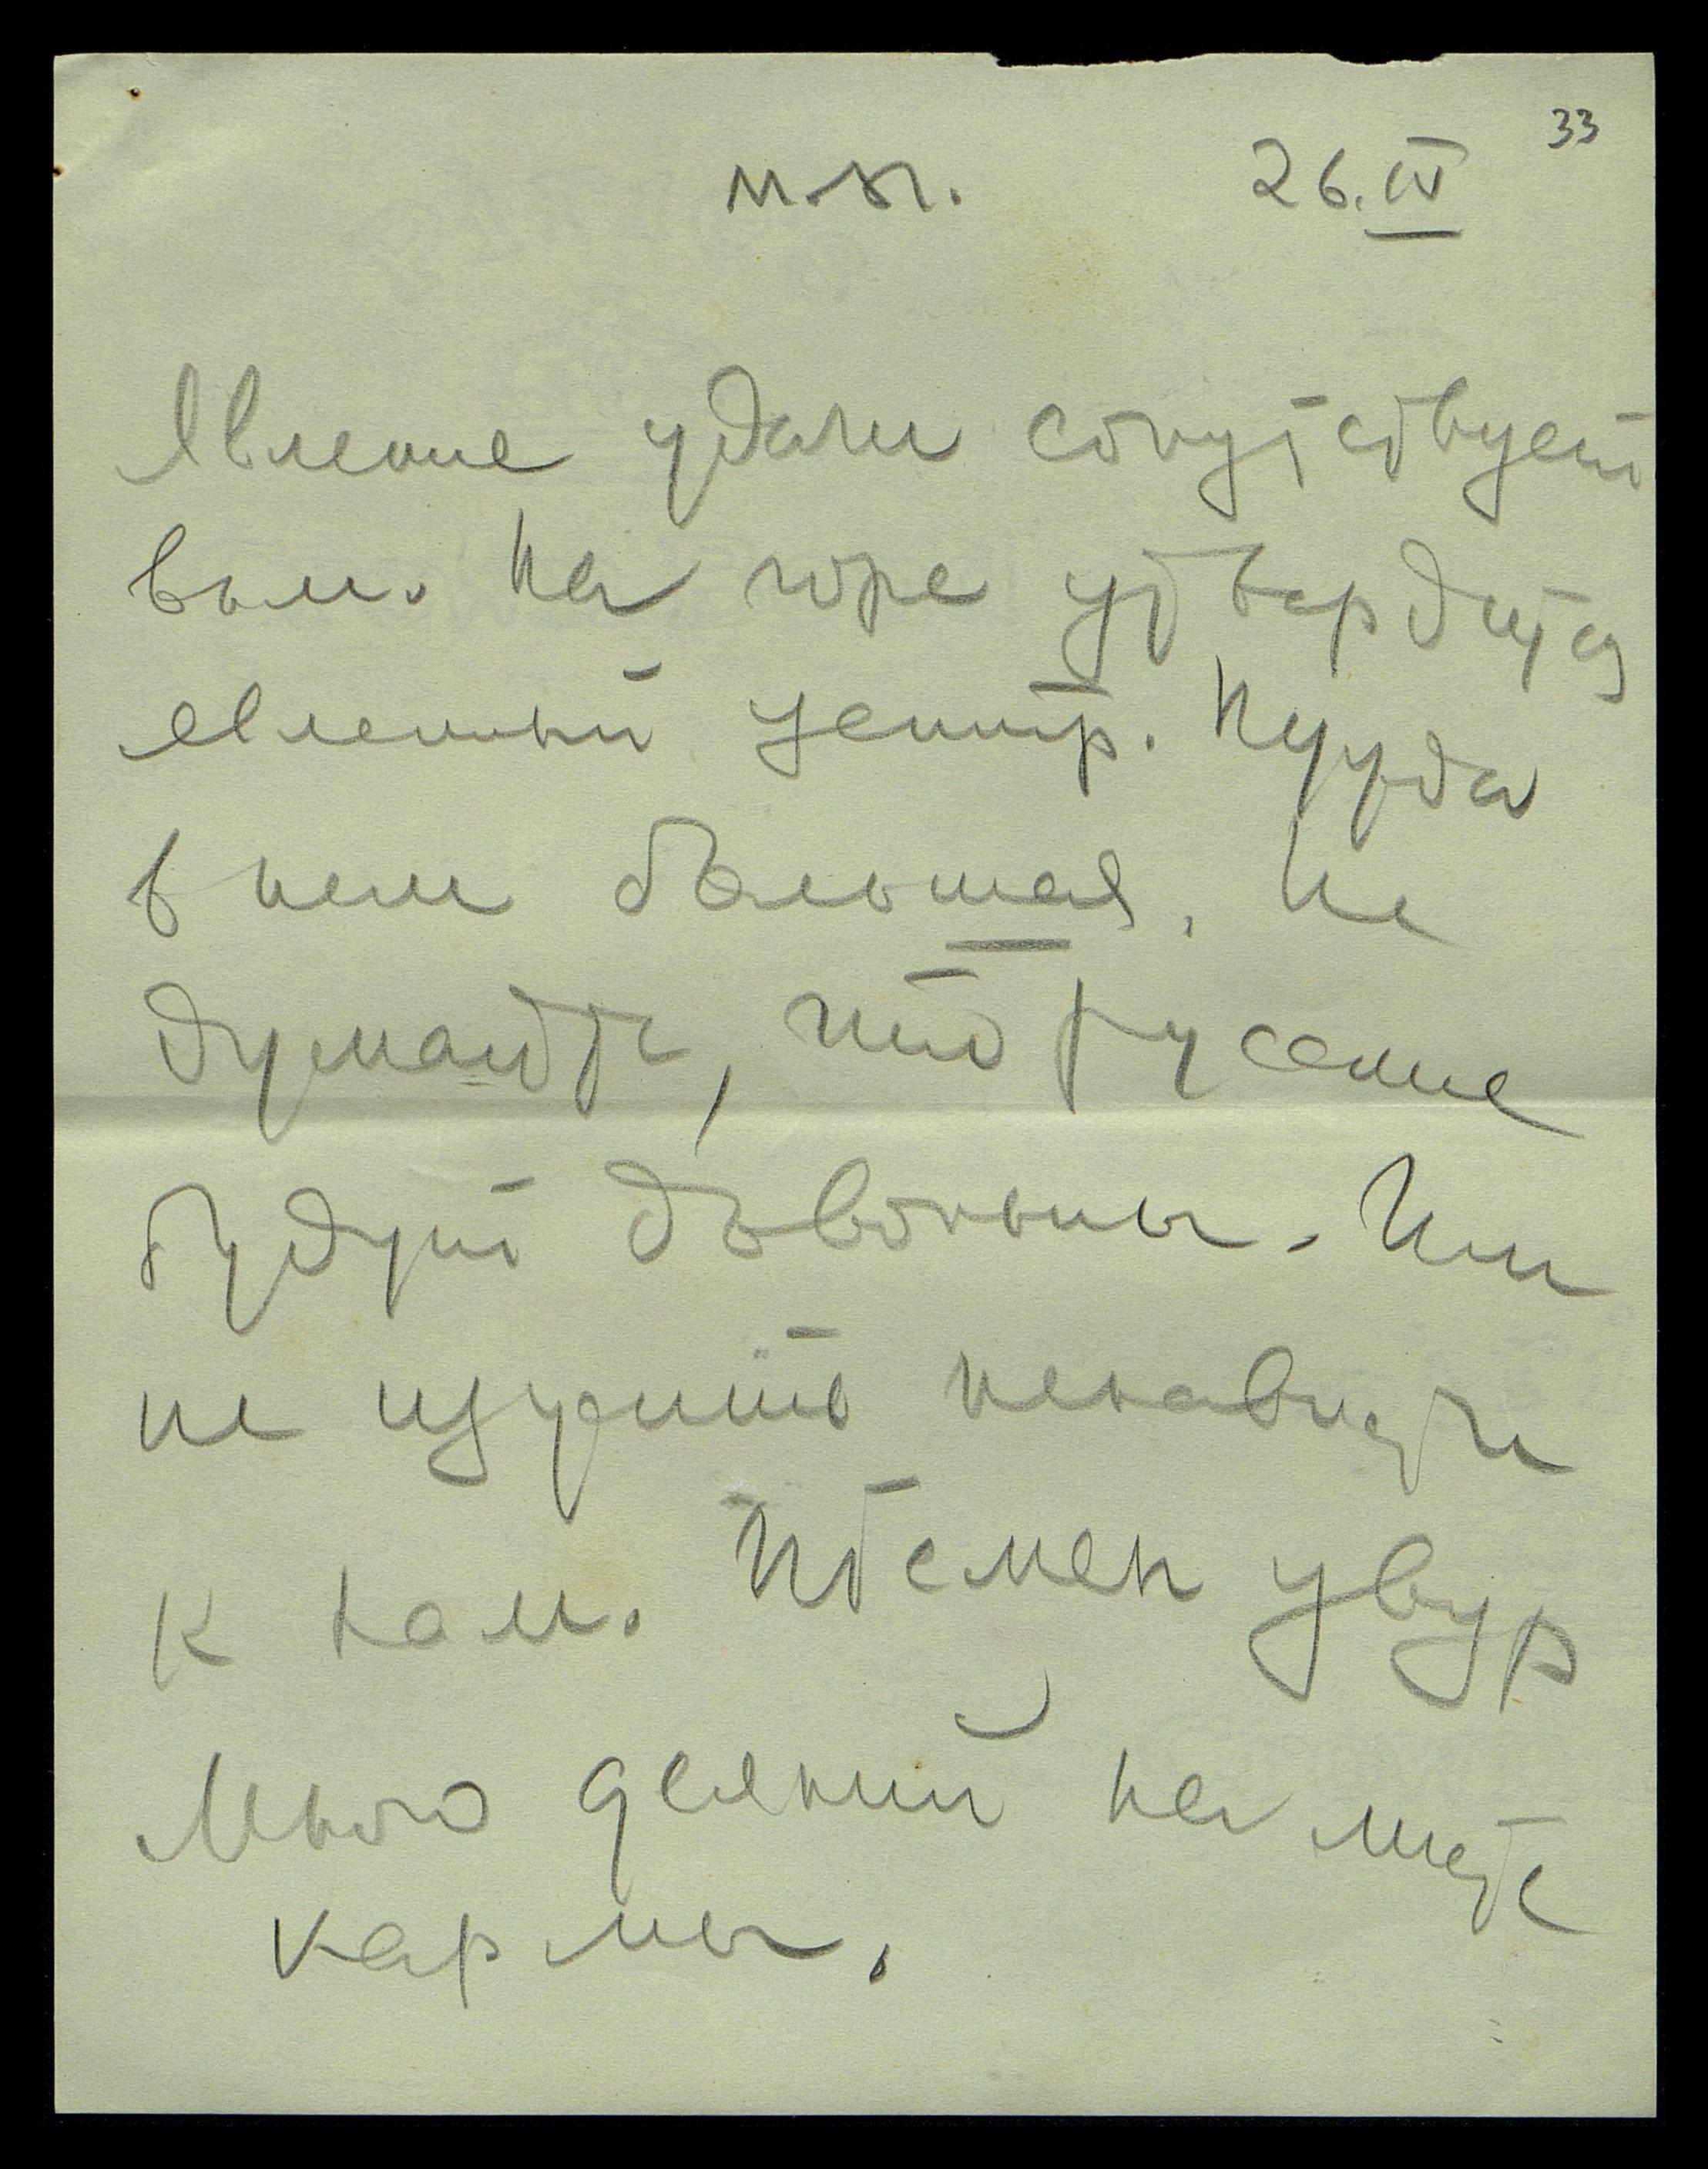 33
26.IV
Явление удачи сопутствует
вам. На горе утвердится
явленный центр. Нужда
в нем большая. Не
думайте, что русские
будут довольны. Им
не изжить ненависти
к нам.
Много деяний на листе
кармы.